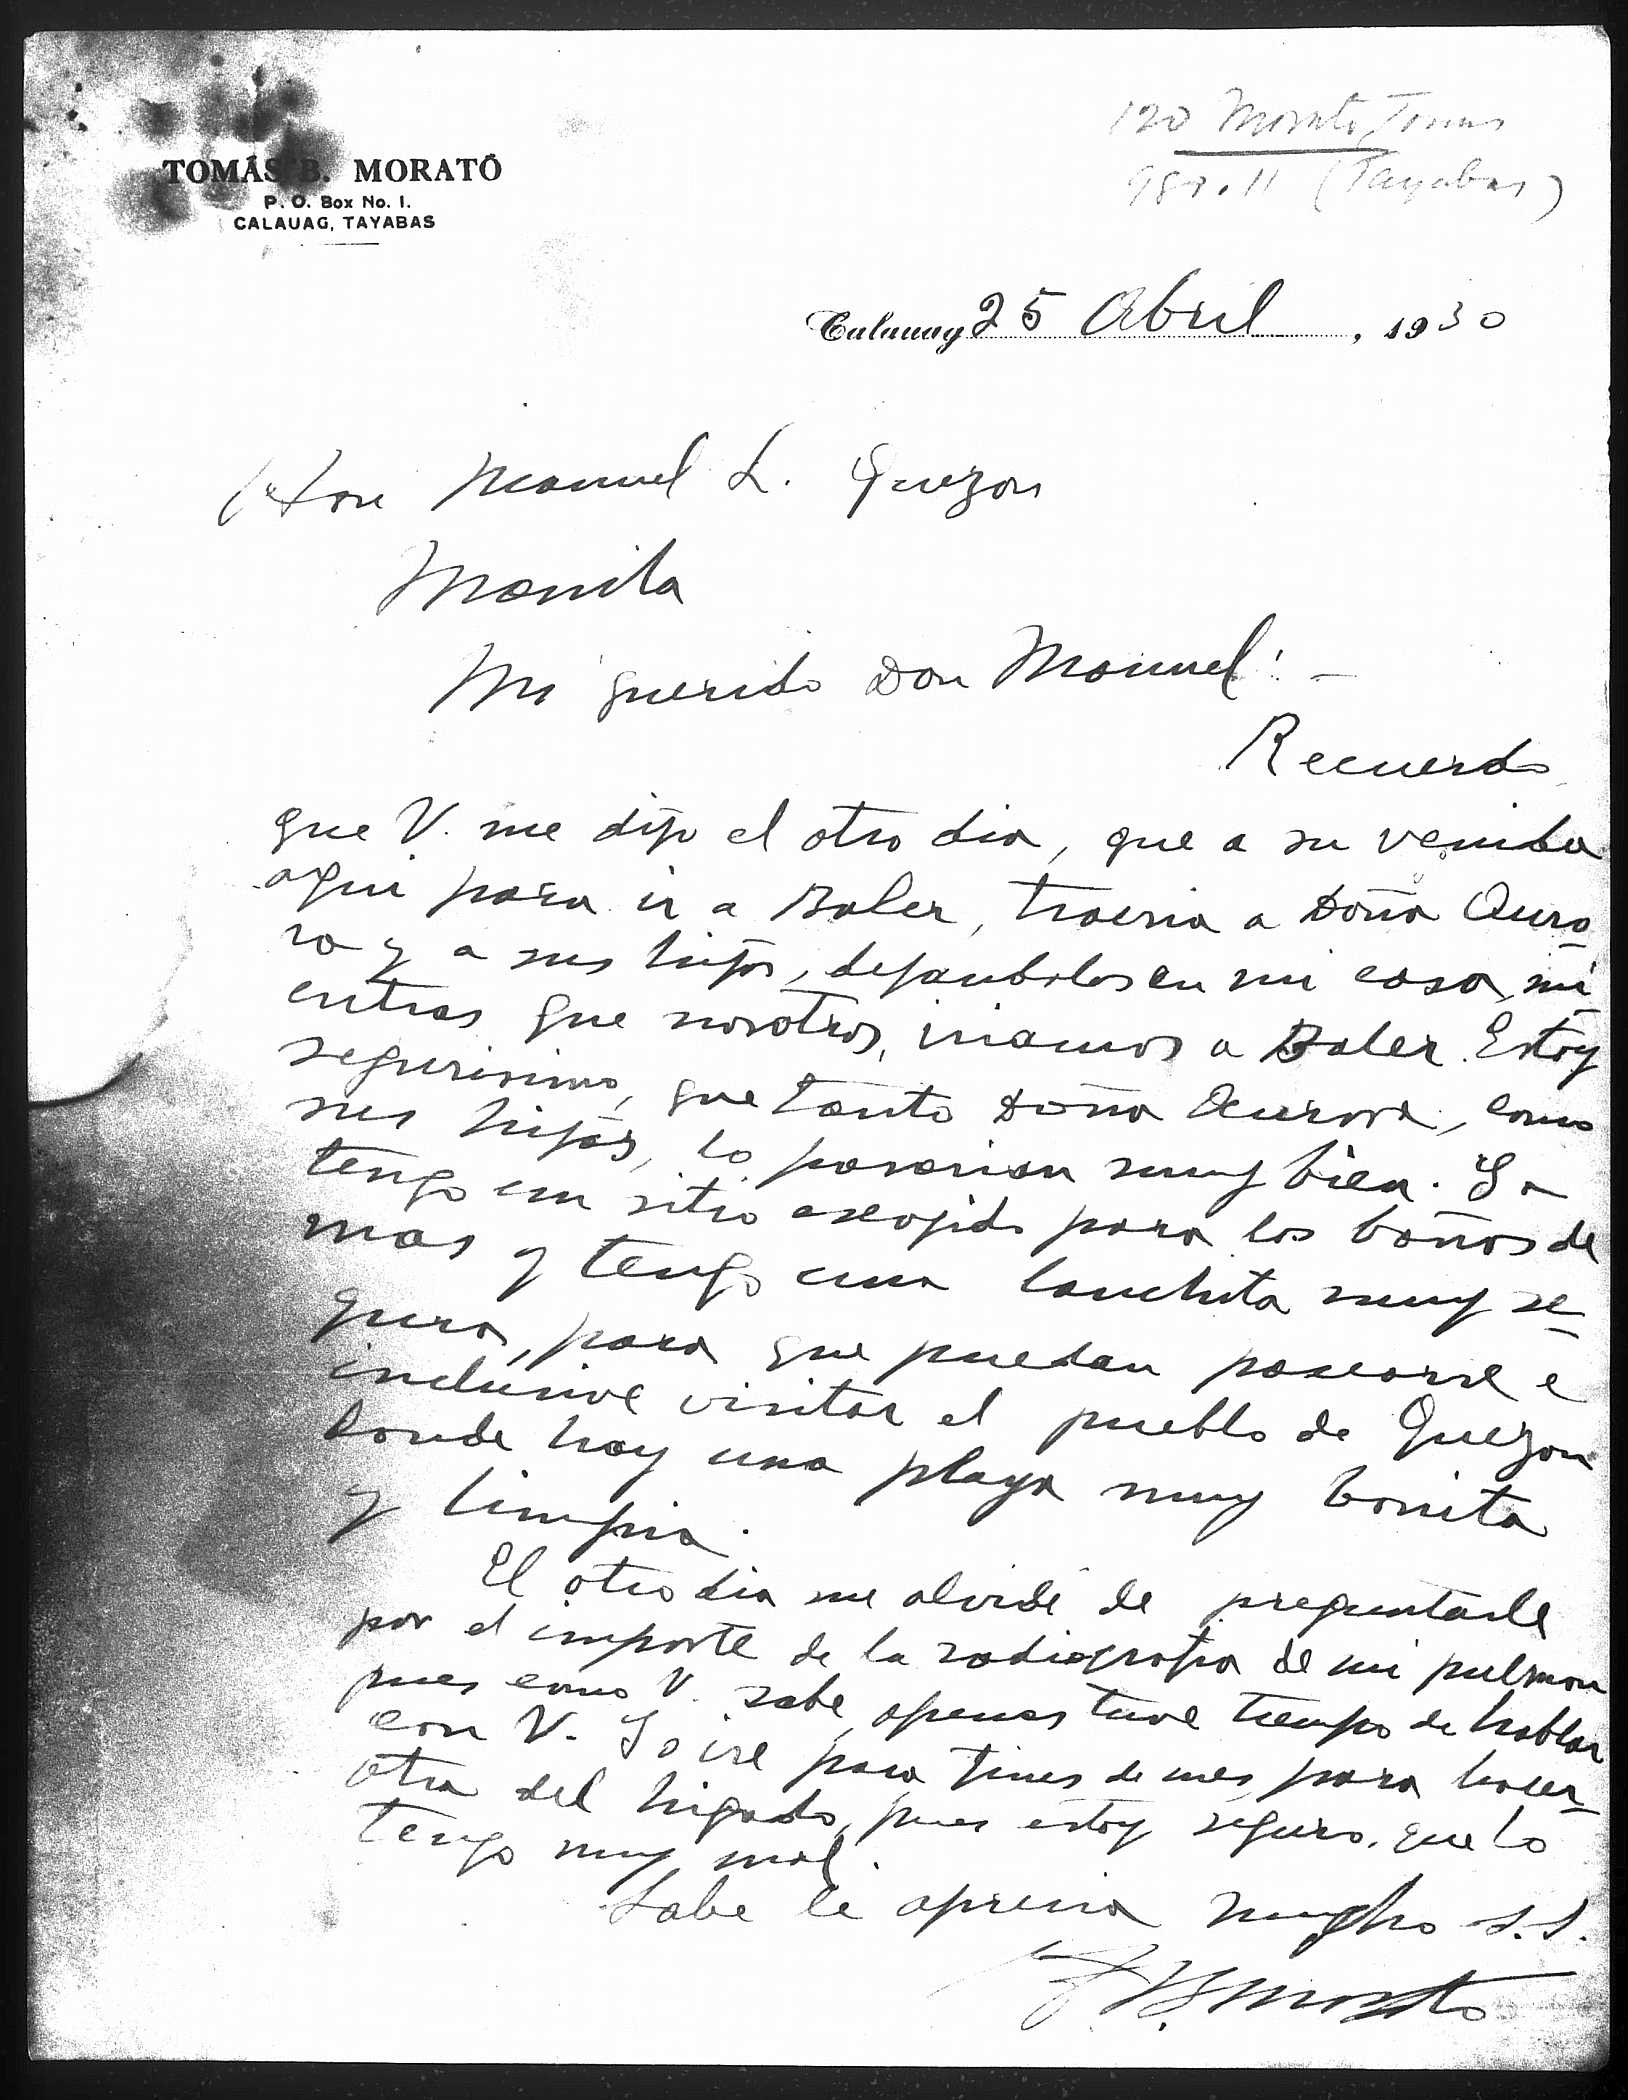 120 Morato, Tomas
(Tayabas)
TOMÁS B. MORATÓ
P. O. Box No. 1.
CALAUAG, TAYABAS
Calauag 25 Abril, 1930
Hon Manuel L. Quezon
Manila
Mi querido Don Manuel: —
Recuerdo
que V. me dijo el otro dia, que a su venida
aqui para ir a Baler, traeria a Doña Auro-
ra y a sus hijos, dejandolos en mi casa, mi-
entras que nosotros, iriamos a Baler. Estoy
segurisimo, que tanto Doña Aurora, como
sus hijos, lo pasarian muy bien. Ya
tengo un sitio escojido para los baños de
mar y tengo una lanchita muy se-
gura, para que puedan pasearse e
inclusive visitar el pueblo de Quezon
donde hay una playa muy bonita
y limpia.
El otro dia me olvidé de preguntarle
por el importe de la radiografia de mi pulmon
pues como V. sabe, apenas tuve tiempo de hablar
con V. Yo iré para fines de mes, para hacer-
otra del higado, pues estoy seguro, que lo
tengo muy mal.
Sabe le aprecia mucho s.s.
T. B. Morato